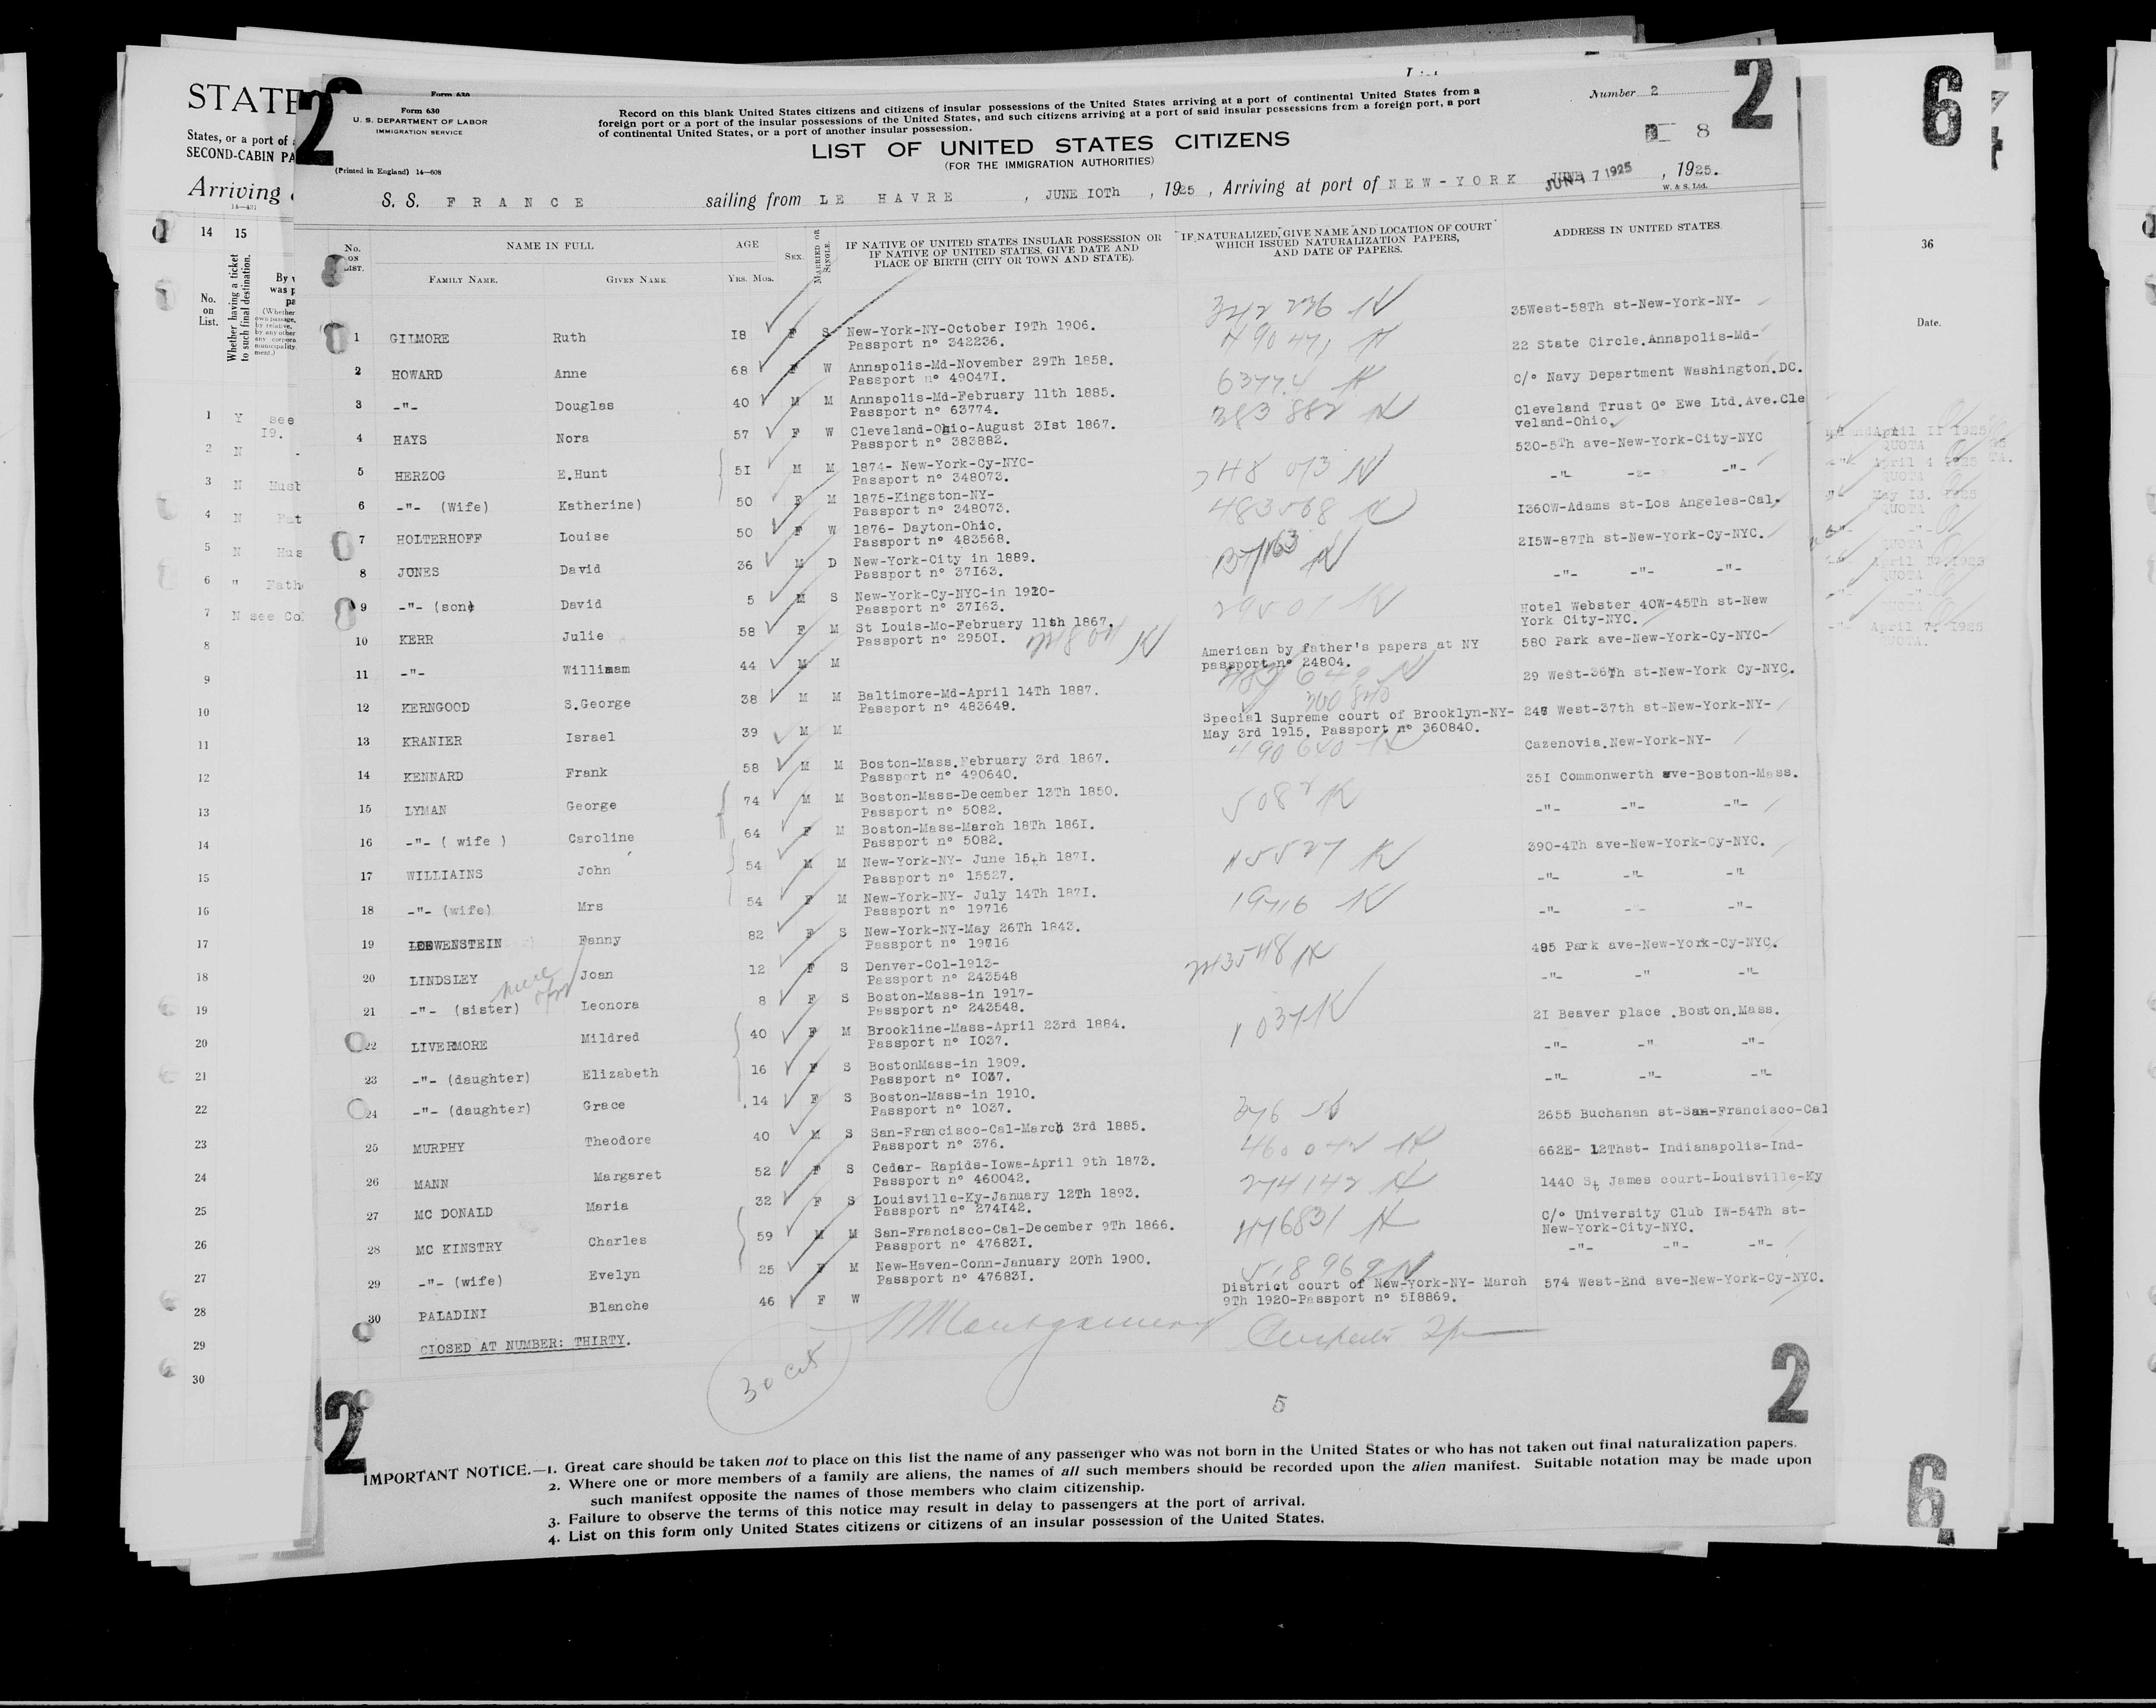 STATE
States, or a port of
SECOND-CABIN PA
Arriving
14 15
No. on List.
Whether having a ticket to such final destination.
2
Form 630
U. S. DEPARTMENT OF LABOR
IMMIGRATION SERVICE
(Printed in England) 14—608
Record on this blank United States citizens and citizens of insular possessions of the United States arriving at a port of continental United States from a
foreign port or a port of the insular possessions of the United States, and such citizens arriving at a port of said insular possessions from a foreign port, a port
of continental United States, or a port of another insular possession.
Number 2
2
8
6
LIST OF UNITED STATES CITIZENS
(FOR THE IMMIGRATION AUTHORITIES)
S. S. FRANCE sailing from LE HAVRE , JUNE IOTh , 1925 , Arriving at port of NEW-YORK JUN 17 1925 , 1925.
W. & S. Ltd.
No. ON LIST. NAME IN FULL AGE SEX. MARRIED OR SINGLE. IF NATIVE OF UNITED STATES INSULAR POSSESSION OR IF NATIVE OF UNITED STATES, GIVE DATE AND PLACE OF BIRTH (CITY OR TOWN AND STATE). IF NATURALIZED, GIVE NAME AND LOCATION OF COURT WHICH ISSUED NATURALIZATION PAPERS, AND DATE OF PAPERS. ADDRESS IN UNITED STATES.
FAMILY NAME. GIVEN NAME YRS. MOS.
36
Date.
342 236 N 35West-58Th st-New-York-NY-
1 GILMORE Ruth I8 F S New-York-NY-October I9Th 1906.
Passport n° 342236.
490471 N 22 State Circle.Annapolis-Md-
2 HOWARD Anne 68 F W Annapolis-Md-November 29Th 1858.
Passport n° 49047I.
63774 N C/° Navy Department Washington.DC.
3 -"- Douglas 40 M M Annapolis-Md-February 11th 1885.
Passport n° 63774.
383 882 N Cleveland Trust G° Ewe Ltd.Ave.Cle
veland-Ohio.
4 HAYS Nora 57 F W Cleveland-Ohio-August 3Ist 1867.
Passport n° 383882.
530-5Th ave-New-York-City-NYC
5 HERZOG E.Hunt 5I M M 1874- New-York-Cy-NYC-
Passport n° 348073.
348 073 N -"- -"- -"-
6 -"- (Wife) Katherine) 50 F M 1875-Kingston-NY-
Passport n° 348073.
483568 N I360W-Adams st-Los Angeles-Cal.
7 HOLTERHOFF Louise 50 F W 1876- Dayton-Ohio.
Passport n° 483568.
37163 N 2I5W-87Th st-New-York-Cy-NYC.
8 JONES David 36 M D New-York-City in 1889.
Passport n° 37I63.
-"- -"- -"-
9 -"- (son) David 5 M S New-York-Cy-NYC-in 1920-
Passport n° 37I63.
29501 N Hotel Webster 40W-45Th st-New
York City-NYC.
10 KERR Julie 58 F M St Louis-Mo-February 11th 1867.
Passport n° 2950I. 24804 N
American by father's papers at NY
passport n° 24804.
580 Park ave-New-York-Cy-NYC-
11 -"- Williaam 44 M M
483 649 N 29 West-36Th st-New-York Cy-NYC.
12 KERNGOOD S.George 38 M M Baltimore-Md-April 14Th 1887.
Passport n° 483649.
360 840
Special Supreme court of Brooklyn-NY-
May 3rd 1915. Passport n° 360840.
248 West-37th st-New-York-NY-
13 KRANIER Israel 39 M M
490640 N Cazenovia.New-York-NY-
14 KENNARD Frank 58 M M Boston-Mass.February 3rd 1867.
Passport n° 490640.
35I Commonwerth ave-Boston-Mass.
15 LYMAN George 74 M M Boston-Mass-December 13Th 1850.
Passport n° 5082.
5082 N -"- -"- -"-
16 -"- ( wife ) Caroline 64 F M Boston-Mass-March 18Th 186I.
Passport n° 5082.
390-4Th ave-New-York-Cy-NYC.
17 WILLIAINS John 54 M M New-York-NY- June 15th 187I.
Passport n° 15527.
15527 N -"- -"- -"-
18 -"- (wife) Mrs 54 F M New-York-NY- July 14Th 187I.
Passport n° 19716
19716 N -"- -"-
19 LOEWENSTEIN Fanny 82 F S New-York-NY-May 26Th 1843.
Passport n° 19716
495 Park ave-New-York-Cy-NYC.
20 LINDSLEY Joan 12 F S Denver-Col-1913-
Passport n° 243548
243548 N -"- -" -"-
21 -"- (sister) Leonora 8 F S Boston-Mass-in 1917-
Passport n° 243548.
2I Beaver place .Boston.Mass.
22 LIVERMORE Mildred 40 F M Brookline-Mass-April 23rd 1884.
Passport n° I037.
1037 N -"- -" -"-
23 -"- (daughter) Elizabeth 16 F S BostonMass-in 1909.
Passport n° I037.
-"- -"- -"-
24 -"- (daughter) Grace 14 F S Boston-Mass-in 1910.
Passport n° 1037.
376 2655 Buchanan st-San-Francisco-Cal
25 MURPHY Theodore 40 M S San-Francisco-Cal-March 3rd 1885.
Passport n° 376.
460042 N 662E- 12Thst- Indianapolis-Ind-
26 MANN Margaret 52 F S Cedar- Rapids-Iowa-April 9th 1873.
Passport n° 460042.
274142 N 1440 St James court-Louisville-Ky
27 MC DONALD Maria 32 F S Louisville-Ky-January 12Th 1893.
Passport n° 274I42.
C/° University Club IW-54Th st-
New-York-City-NYC.
28 MC KINSTRY Charles 59 M M San-Francisco-Cal-December 9Th 1866.
Passport n° 47683I.
476831 N -"- -"- -"-
29 -"- (wife) Evelyn 25 F M New-Haven-Conn-January 20Th 1900.
Passport n° 47683I.
518969 N
District court of New-York-NY- March
9Th 1920-Passport n° 5I8869.
574 West-End ave-New-York-Cy-NYC.
30 PALADINI Blanche 46 F W
CLOSED AT NUMBER: THIRTY.
30 cit
Montgomery
5
2
2
IMPORTANT NOTICE.—1. Great care should be taken not to place on this list the name of any passenger who was not born in the United States or who has not taken out final naturalization papers.
2. Where one or more members of a family are aliens, the names of all such members should be recorded upon the alien manifest. Suitable notation may be made upon
such manifest opposite the names of those members who claim citizenship.
3. Failure to observe the terms of this notice may result in delay to passengers at the port of arrival.
4. List on this form only United States citizens or citizens of an insular possession of the United States.
6